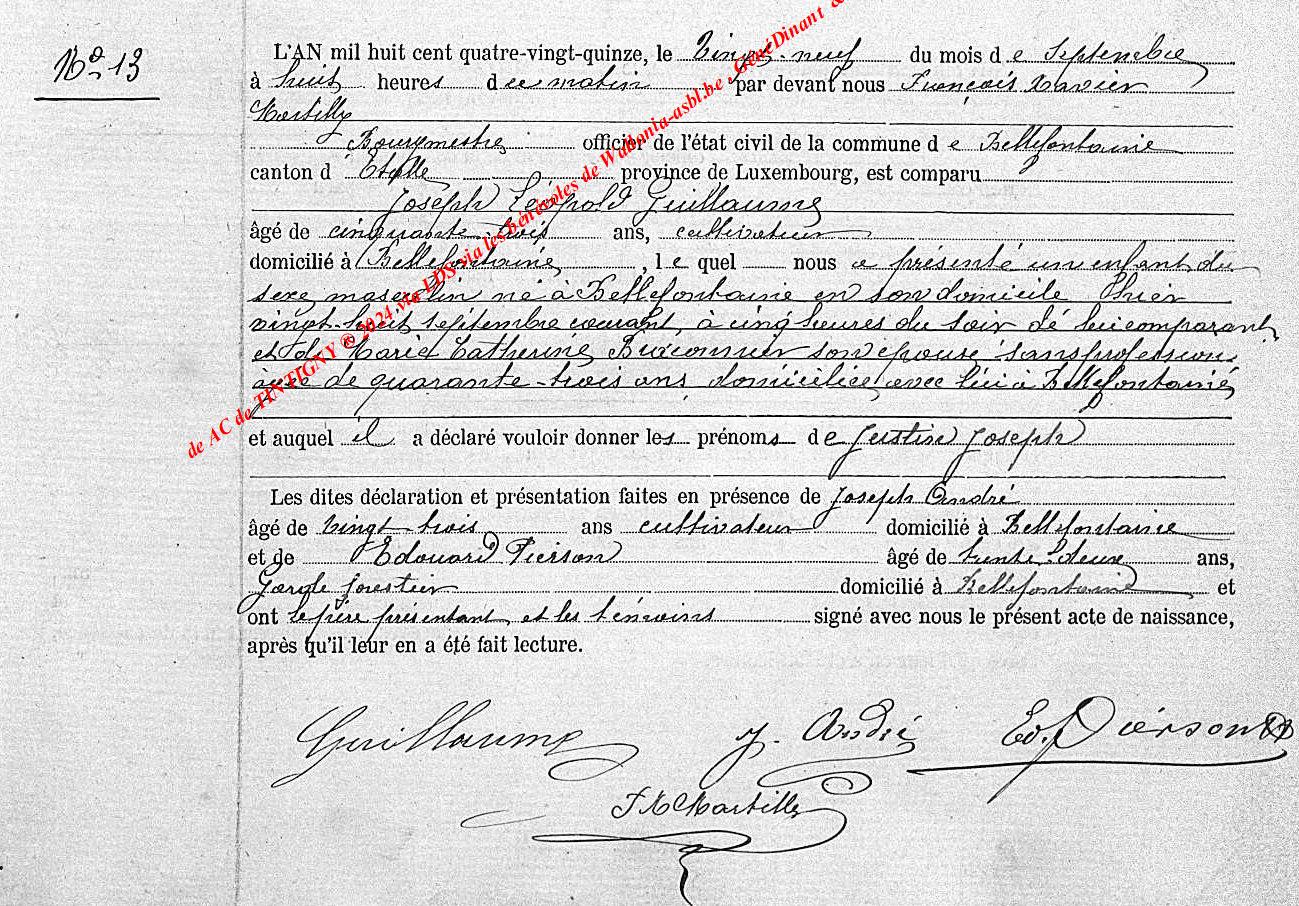 No 13
L'AN mil huit cent quatre-vingt-quinze, le vingt-neuf du mois de Septembre
à huit heures du matin par devant nous François Xavier
Martilly
Bourgmestre officier de l'état civil de la commune de Bellefontaine
canton d'Etalle province de Luxembourg, est comparu
Joseph Léopold Guillaume
âgé de cinquante-trois ans, cultivateur
domicilié à Bellefontaine, le quel nous a présenté un enfant du
sexe masculin né à Bellefontaine en son domicile hier
vingt-huit septembre courant, à cinq heures du soir dé lui comparant
et de Marie Catherine son épouse sans profession
âgée de quarante-trois ans domiciliée avec lui à Bellefontaine
et auquel il a déclaré vouloir donner les prénoms de Justin Joseph
Les dites déclaration et présentation faites en présence de Joseph André
âgé de vingt-trois ans cultivateur domicilié à Bellefontaine
et de Edouard Pierson âgé de trente-deux ans,
Garde forestier domicilié à Bellefontaine et
ont le père présentant et les témoins signé avec nous le présent acte de naissance,
après qu'il leur en a été fait lecture.
Guillaume J. André Ed. Pierson
F X Martilly
de AC de TINTIGNY ® 2024 via LDS via les bénévoles de Wallonia-asbl.be - GénéDinant &